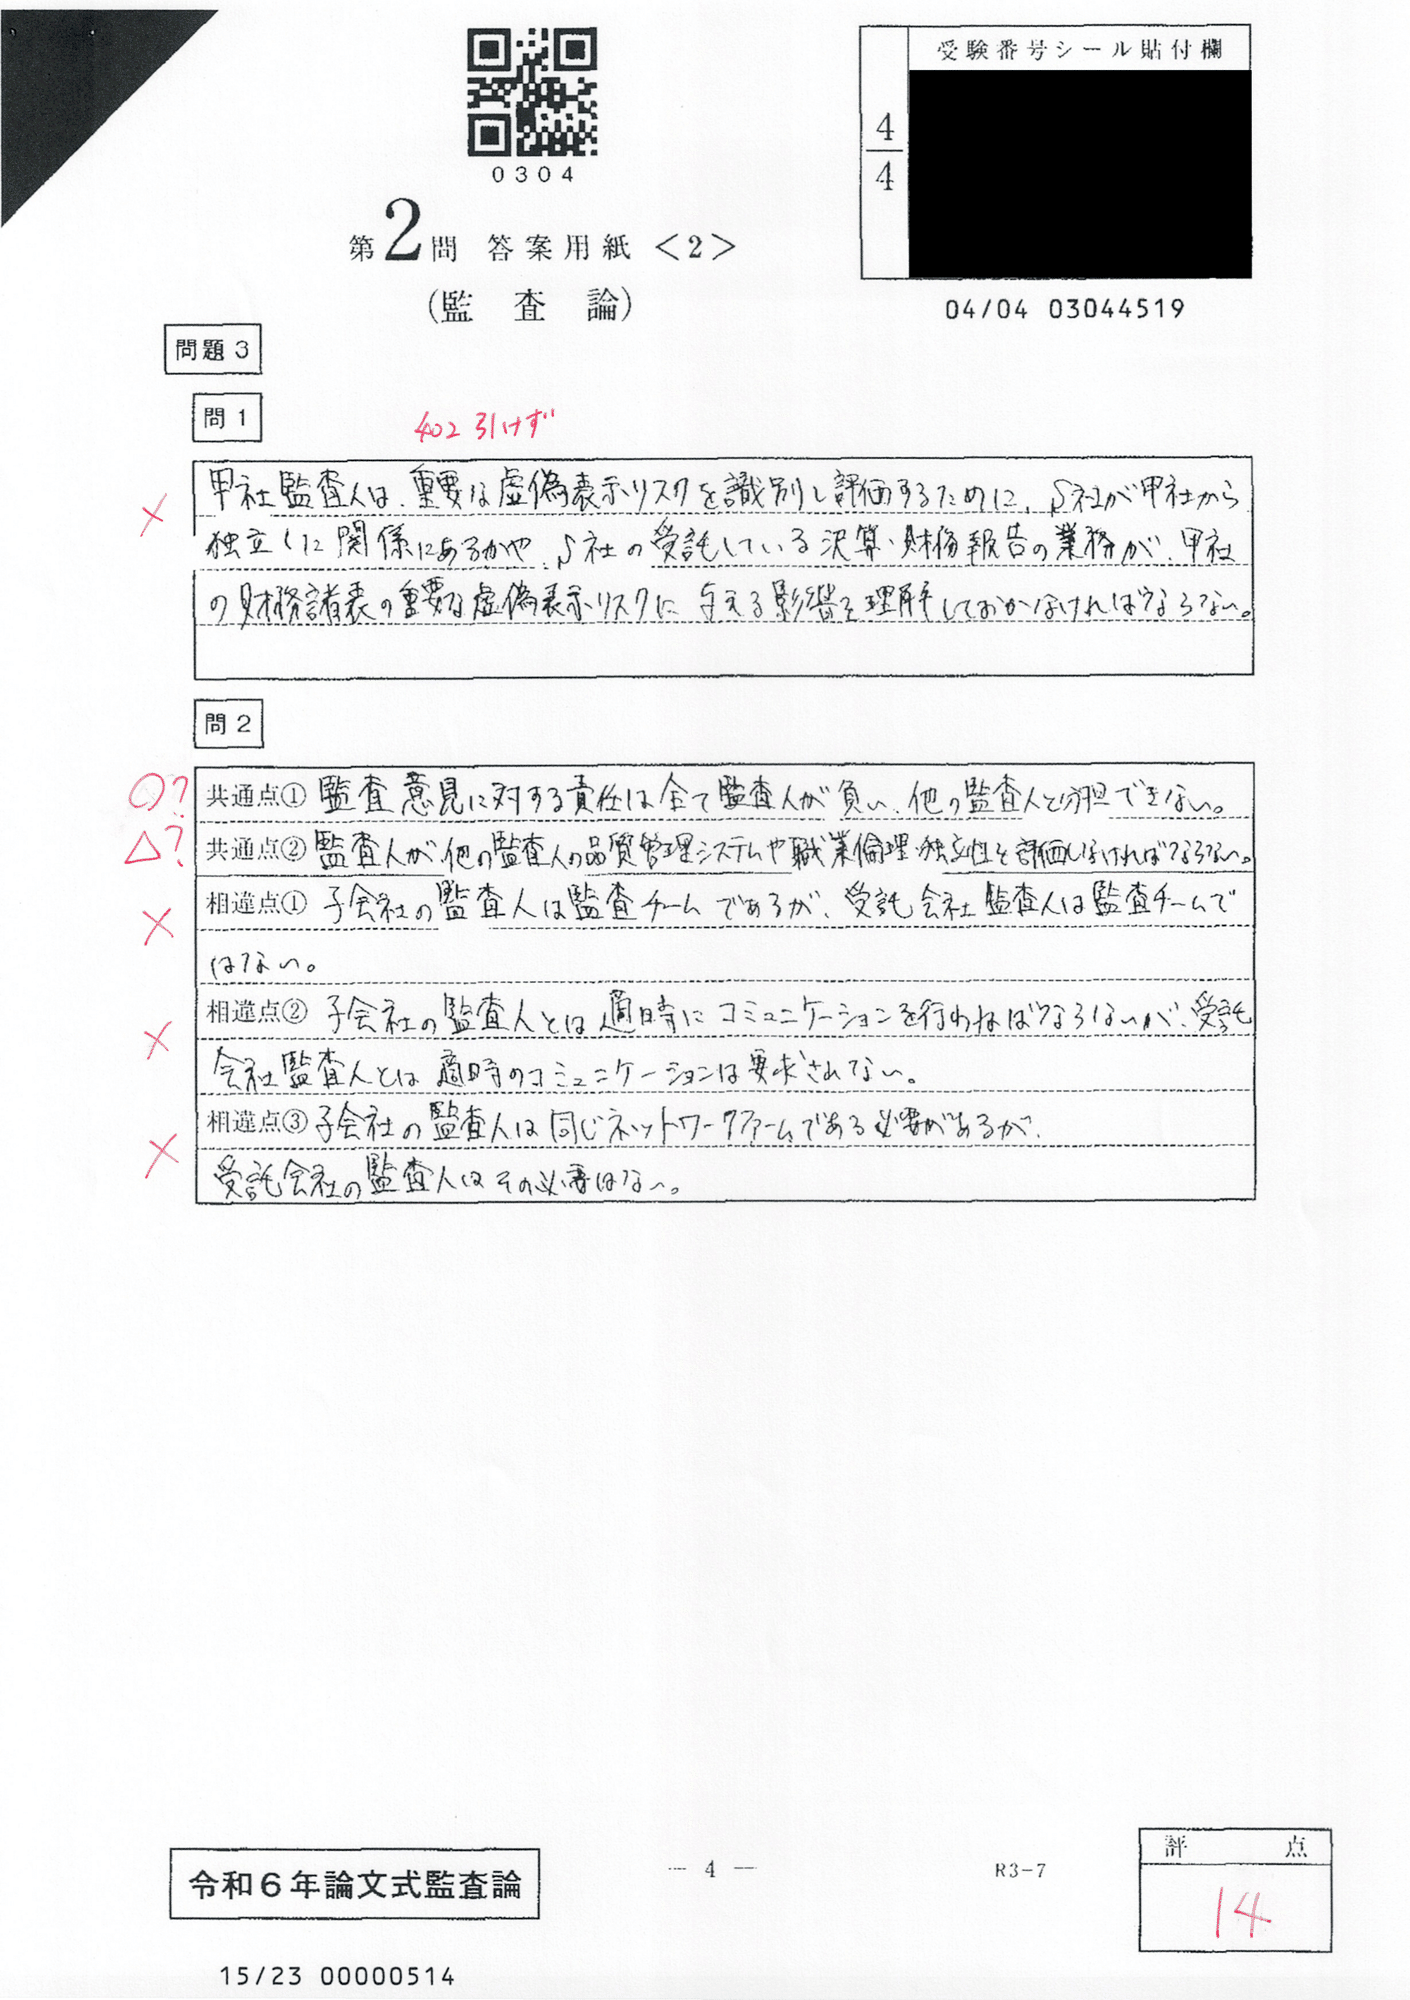 0304
受験番号シール貼付欄
4
4
第2問 答案用紙<2>
(監査論)
04/04 03044519
問題3
問1
402引けず
甲社監査人は、重要な虚偽表示リスクを識別し評価するために、S社が甲社から
独立した関係にあるかや、S社の受託している決算・財務報告の業務が、甲社
の財務諸表の重要な虚偽表示リスクに与える影響を理解しておかなければならない。
×
問2
○? 共通点① 監査意見に対する責任は全て監査人が負い、他の監査人と分担できない。
△? 共通点② 監査人が、他の監査人の品質管理システムや職業倫理・独立性を評価しなければならない。
× 相違点① 子会社の監査人は監査チームであるが、受託会社監査人は監査チームで
はない。
× 相違点② 子会社の監査人とは適時にコミュニケーションを行わねばならないが、受託
会社監査人とは適時のコミュニケーションは要求されてない。
相違点③ 子会社の監査人は同じネットワークファームである必要があるが、
× 受託会社の監査人はその必要はない。
令和6年論文式監査論
― 4 ―
R3-7
評点
14
15/23 00000514